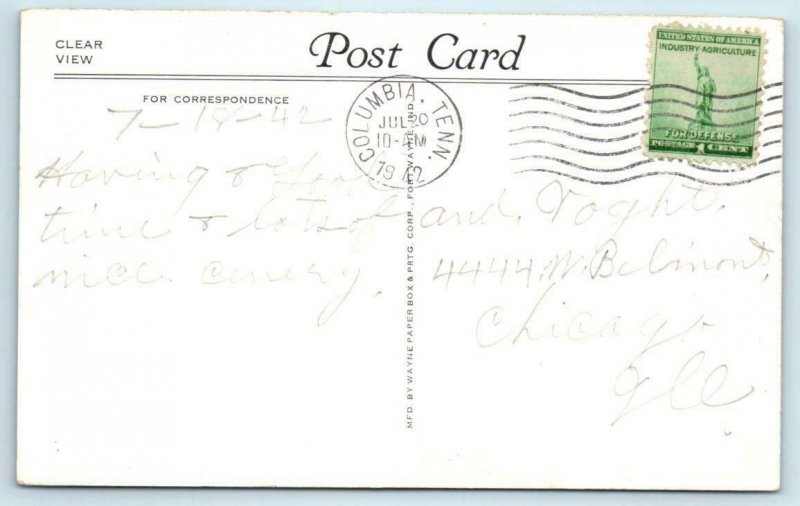 CLEAR
VIEW
Post Card
FOR CORRESPONDENCE
COLUMBIA, TENN.
JUL 20
10-AM
1942
UNITED STATES OF AMERICA
INDUSTRY AGRICULTURE
FOR DEFENSE
POSTAGE 1 CENT
7-18-42
Having a Good
time & lots of
nice cenery.
MFD. BY WAYNE PAPER BOX & PRTG. CORP., FORT WAYNE, IND.
and. Voght.
4444 W. Belmont,
Chicago
Ill